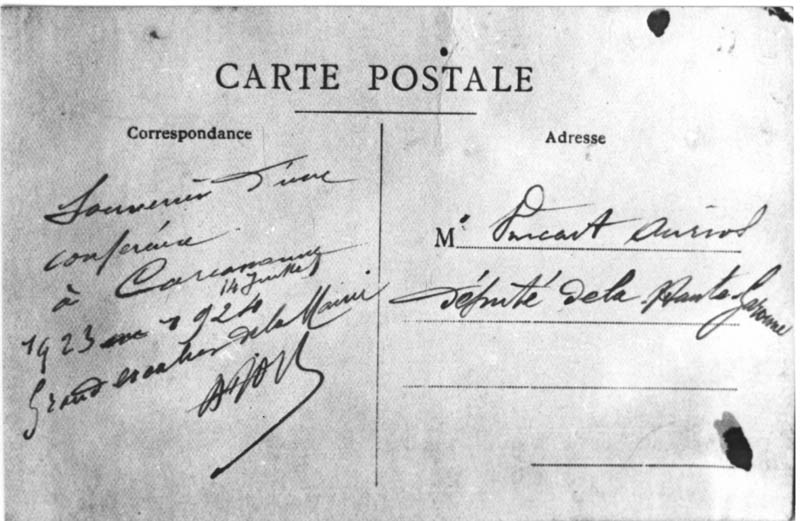 CARTE POSTALE
Correspondance
Souvenir d'une
conférence
à Carcassonne
14 Juillet
1923 ou 1924
Grand escalier de la Mairie
Adresse
M. Vincent Auriol
Député de la Haute Garonne